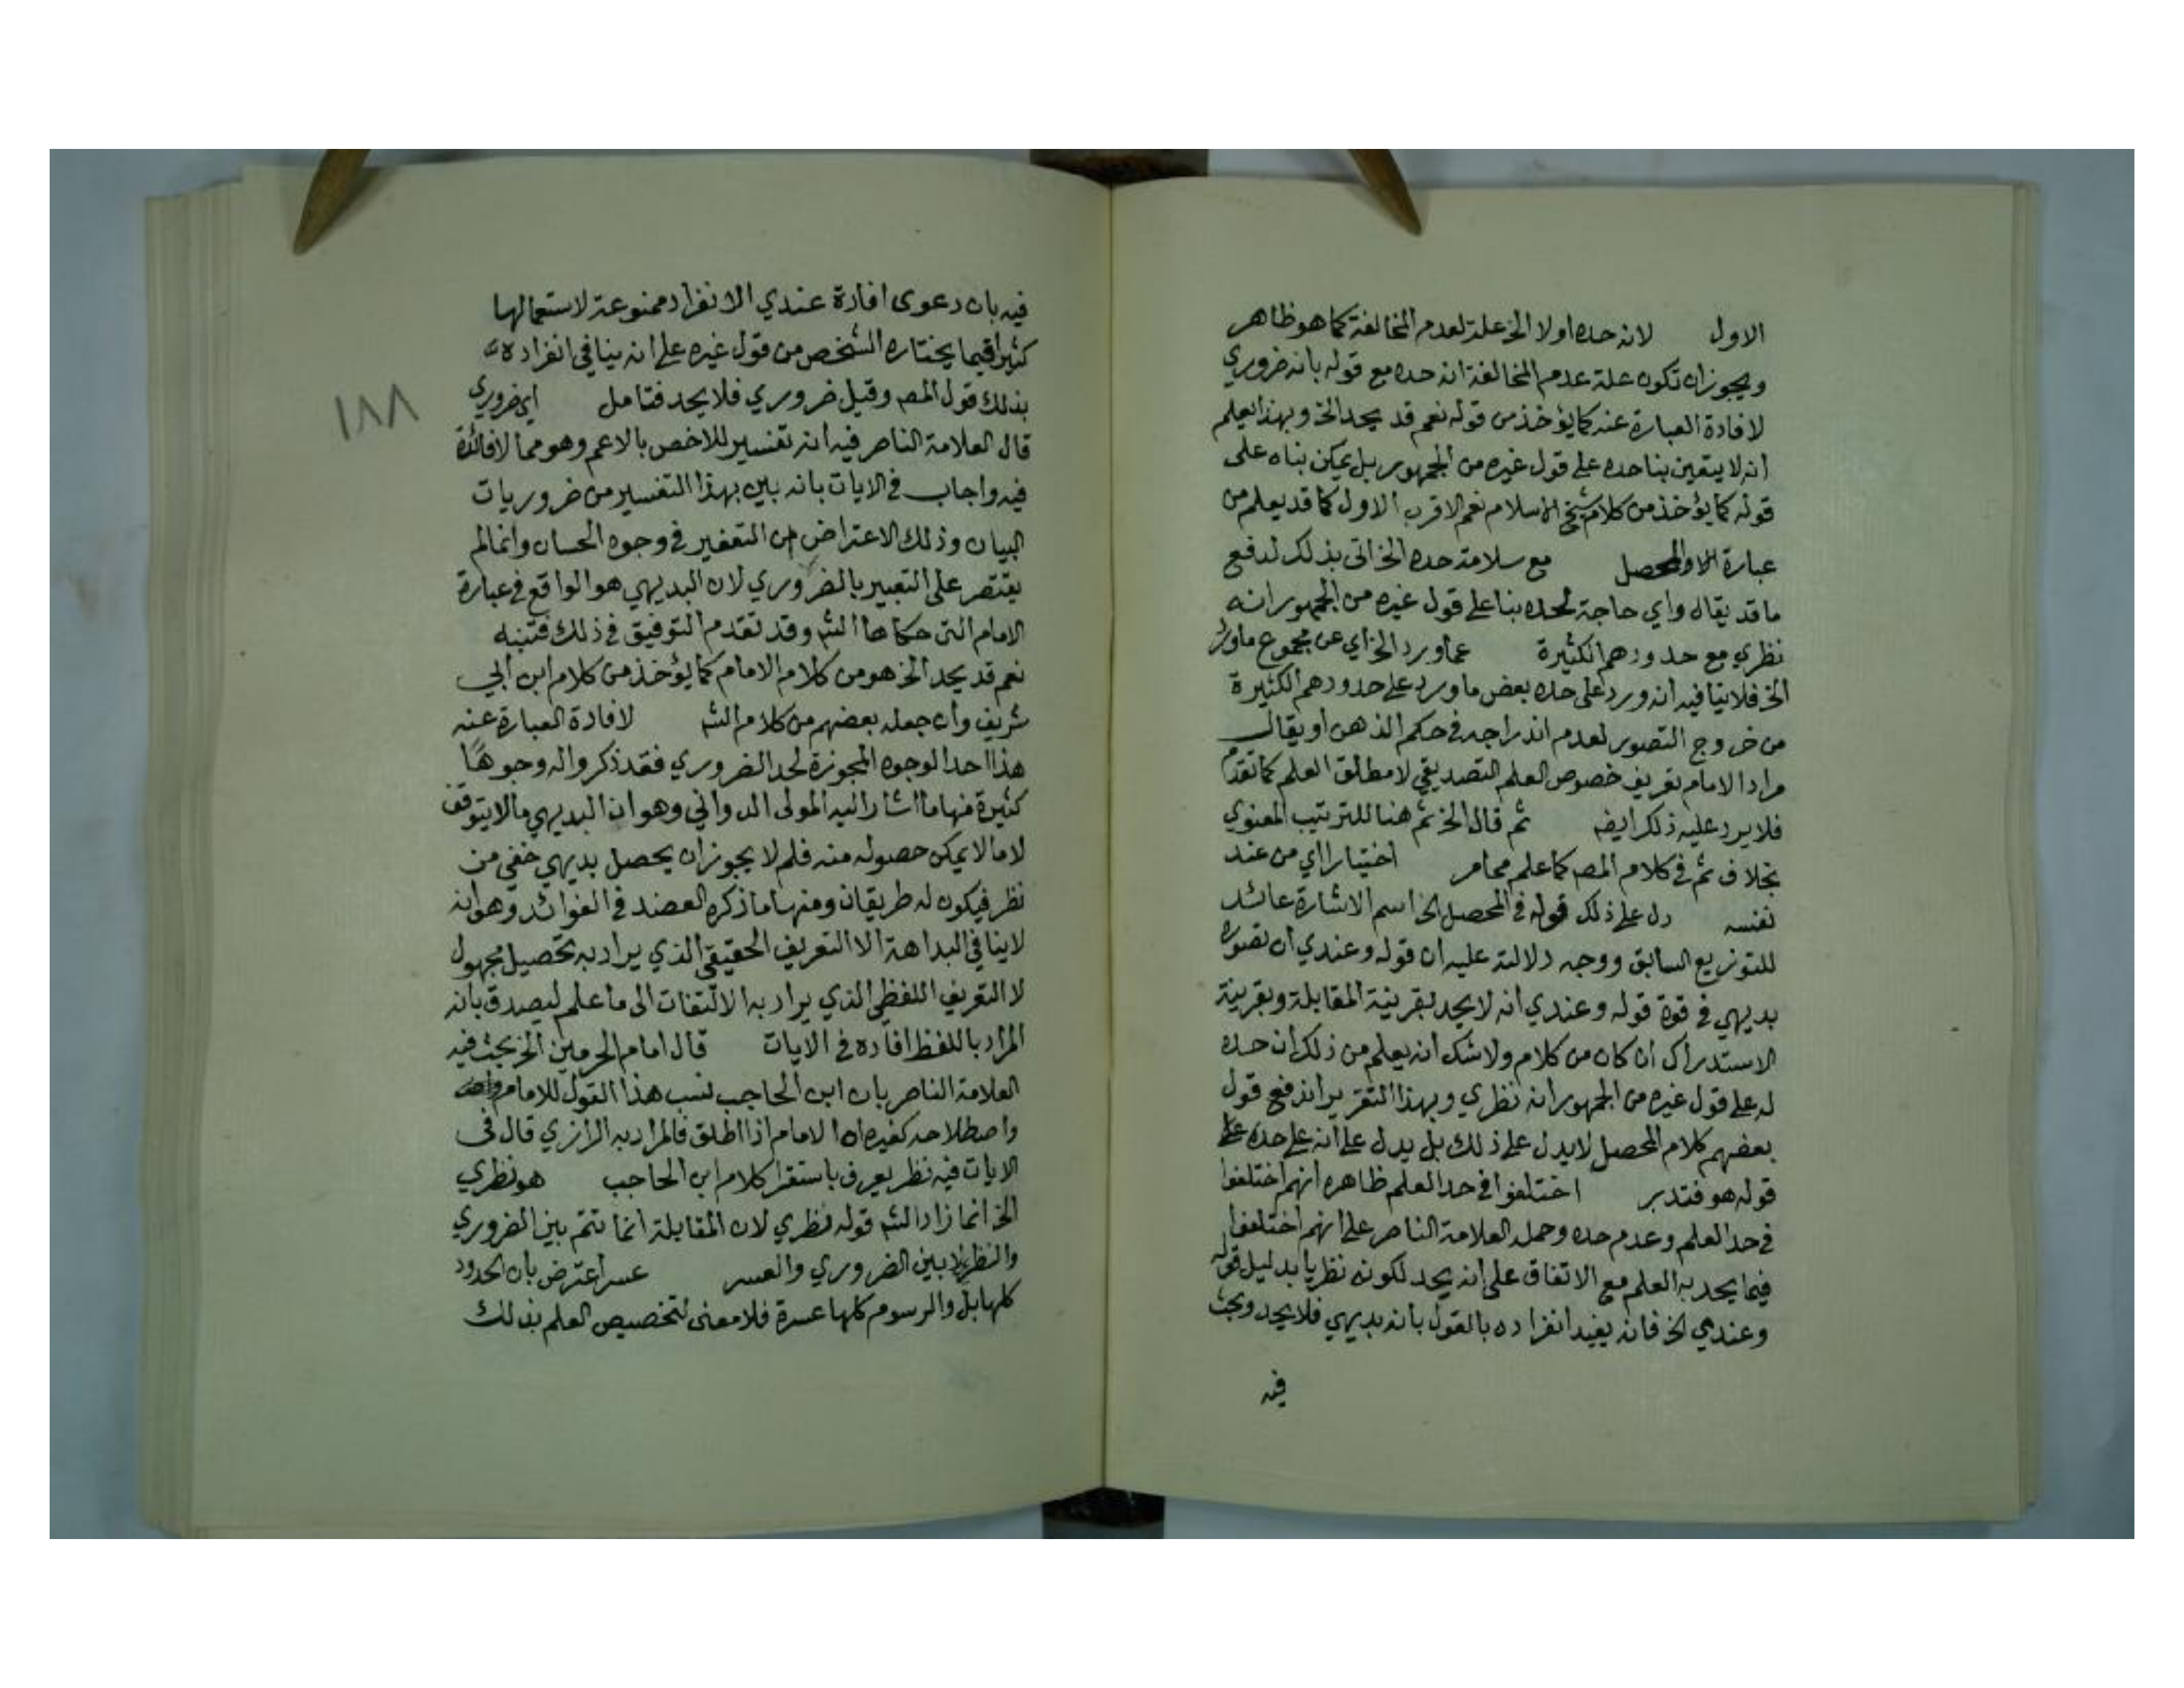 الاول لانه حده اولا الخ علة لعدم المخالفة كما هو ظاهر
ويجوز ان تكون علة عدم المخالفة انه حده مع قوله بانه ضروري
لافادة العبارة عنه كما يؤخذ من قوله نعم قد يحد الخ وبهذا يعلم
انه لا يتعين بنا حده على قول غيره من الجمهور بل يمكن بناه على
قوله كما يؤخذ من كلام شيخ الاسلام نعم الاقرب الاول كما قد يعلم من
عبارة المحصل مع سلامة حده الخ اتى بذلك لدفع
ما قد يقال واي حاجة لحده بنا على قول غيره من الجمهور انه
نظري مع حدودهم الكثيرة عما ورد الخ اي عن مجموع ما ورد
الخ فلا ينافيه انه ورد على حده بعض ما ورد على حدودهم الكثيرة
من خروج التصور لعدم اندراجه في حكم الذهن او يقال
مراد الامام تعريف خصوص العلم التصديقي لا مطلق العلم كما تقدم
فلا يرد عليه ذلك ايضا ثم قال الخ ثم هنا للترتيب المعنوي
بخلاف ثم في كلام المص كما علم مما مر اختيارا اي من عند
نفسه دل على ذلك قوله في المحصل الخ اسم الاشارة عائد
للتوزيع السابق ووجه دلالته عليه ان قوله وعندي ان تصوره
بديهي في قوة قوله وعندي انه لا يحد بقرينة المقابلة وبقرينة
الاستدراك ان كان من كلام ولا شك انه يعلم من ذلك ان حده
له على قول غيره من الجمهور انه نظري وبهذا التقرير اندفع قول
بعضهم كلام المحصل لا يدل على ذلك بل يدل على انه على حده على
قوله هو فتدبر اختلفوا في حد العلم ظاهره انهم اختلفوا
في حد العلم وعدم حده وحمله العلامة الناصر على انهم اختلفوا
فيما يحد به العلم مع الاتفاق على انه يحد لكونه نظريا بدليل قوله
وعندي الخ فانه يفيد انفراده بالقول بانه بديهي فلا يحد وبحث
فيه
فيه بان دعوى افادة عندي الانفراد ممنوعة لاستعمالها
كثيرا فيما يختاره الشخص من قول غيره على انه ينافي انفراده
بذلك قول المص وقيل ضروري فلا يحد فتامل اي ضروري
١٨٨
قال العلامة الناصر فيه انه تفسير للاخص بالاعم وهو مما لا فائدة
فيه واجاب في الايات بانه بين بهذا التفسير من ضروريات
البيان وذلك الاعتراض من التغفير في وجوه الحسان وانما لم
يقتصر على التعبير بالضروري لان البديهي هو الواقع في عبارة
الامام التي حكاها الش وقد تقدم التوفيق في ذلك فتنبه
نعم قد يحد الخ هو من كلام الامام كما يؤخذ من كلام ابن ابي
شريف وان جعله بعضهم من كلام الش لافادة العبارة عنه
هذا احد الوجوه المجوزة لحد الضروري فقد ذكروا له وجوها
كثيرة منها ما اشار اليه المولى الدواني وهو ان البديهي ما لا يتوقف
لا ما لا يمكن حصوله منه فلم لا يجوز ان يحصل بديهي خفي من
نظر فيكون له طريقان ومنها ما ذكره العضد في الفوائد وهو انه
لا ينافي البداهة الا التعريف الحقيقي الذي يراد به تحصيل مجهول
لا التعريف اللفظي الذي يراد به الالتفات الى ما علم ليصدق بانه
المراد باللفظ افاده في الايات قال امام الحرمين الخ بحث فيه
العلامة الناصر بان ابن الحاجب نسب هذا القول للامام
واصطلاحه كغيره ان الامام اذا اطلق فالمراد به الرازي قال في
الايات فيه نظر يعرف باستقرا كلام ابن الحاجب هو نظري
الخ انما زاد الش قوله نظري لان المقابلة انما تتم بين الضروري
والنظري لا بين الضروري والعسر عسر اعترض بان الحدود
كلها بل والرسوم كلها عسرة فلا معنى لتخصيص العلم بذلك